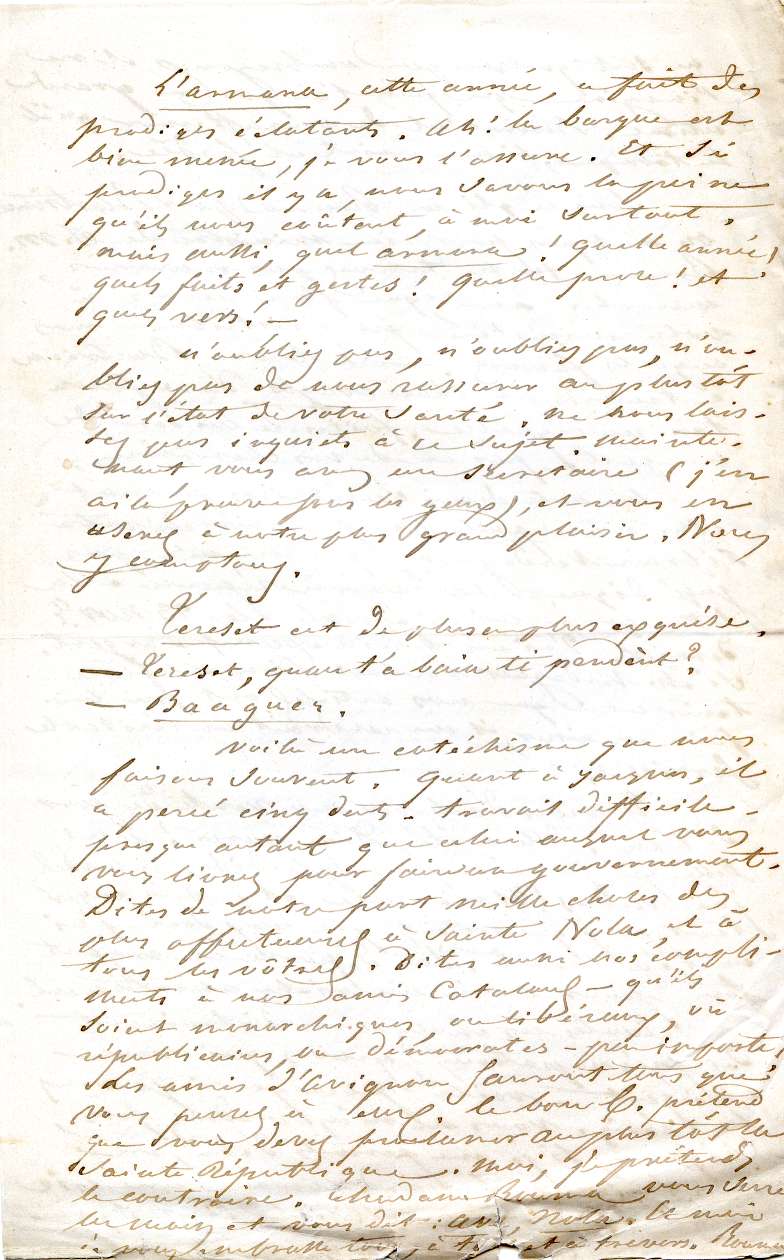 L'armana, cette année, a fait des
prodiges éclatants. Ah! la barque est
bien menée, je vous l'assure. Et si
prodiges il y a, nous savons la peine
qu'ils nous coûtent, à moi surtout,
mais aussi, quel armana! quelle année!
quels faits et gestes! quelle prose! et
quels vers! —
n'oubliez pas, n'oubliez pas, n'ou-
bliez pas de nous rassurer au plus tôt
sur l'état de votre santé, ne nous lais-
sez pas inquiets à ce sujet. mainte-
nant vous avez un secrétaire (j'en
ai la preuve sous les yeux), et vous en
userez à notre plus grand plaisir. Nous
y comptons.
Tereset est de plus en plus exquise.
— Tereset, quau t'a baia ti pendènt?
— Baaguer.
Voilà un catéchisme que nous
faisons souvent. Quant à Jacques, il
a percé cinq dents. travail difficile
presque autant que celui auquel vous
vous livrez pour faire un gouvernement.
Dites de notre part mille choses des
plus affectueuses à Sainte Nola, et à
tous les vôtres. Dites aussi nos compli-
ments à nos amis Catalans — qu'ils
soient monarchiques, ou libéraux, où
républicains, ou démocrates — peu importe!
Les amis d'Avignon sauront tous que
vous pensez à eux. le bon prétend
que vous devez proclamer au plus tôt la
Sainte République. Moi, je prétends
le contraire. Madame Rouma vous serre
la main et vous dit: Nola. Ce mari
vous embrasse tous, à tort et à travers.